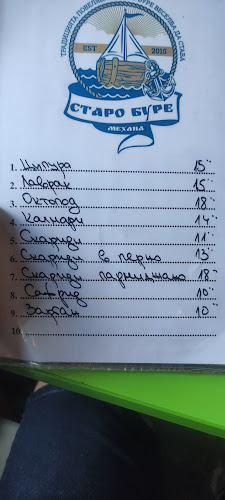 ТРАДИЦИЯТА ПОВЕЛЯВА В БУРЕ ВЕСЕЛБА ДА СТАВА
EST 2015
СТАРО БУРЕ
МЕХАНА
1. Ципура 15
2. Лаврак 15
3. Октопод 18
4. Калмари 14
5. Скариди 11
6. Скариди в перно 13
7. Скариди гарнишмано 18
8. Сафрид 10
9. Зарган 10
10.